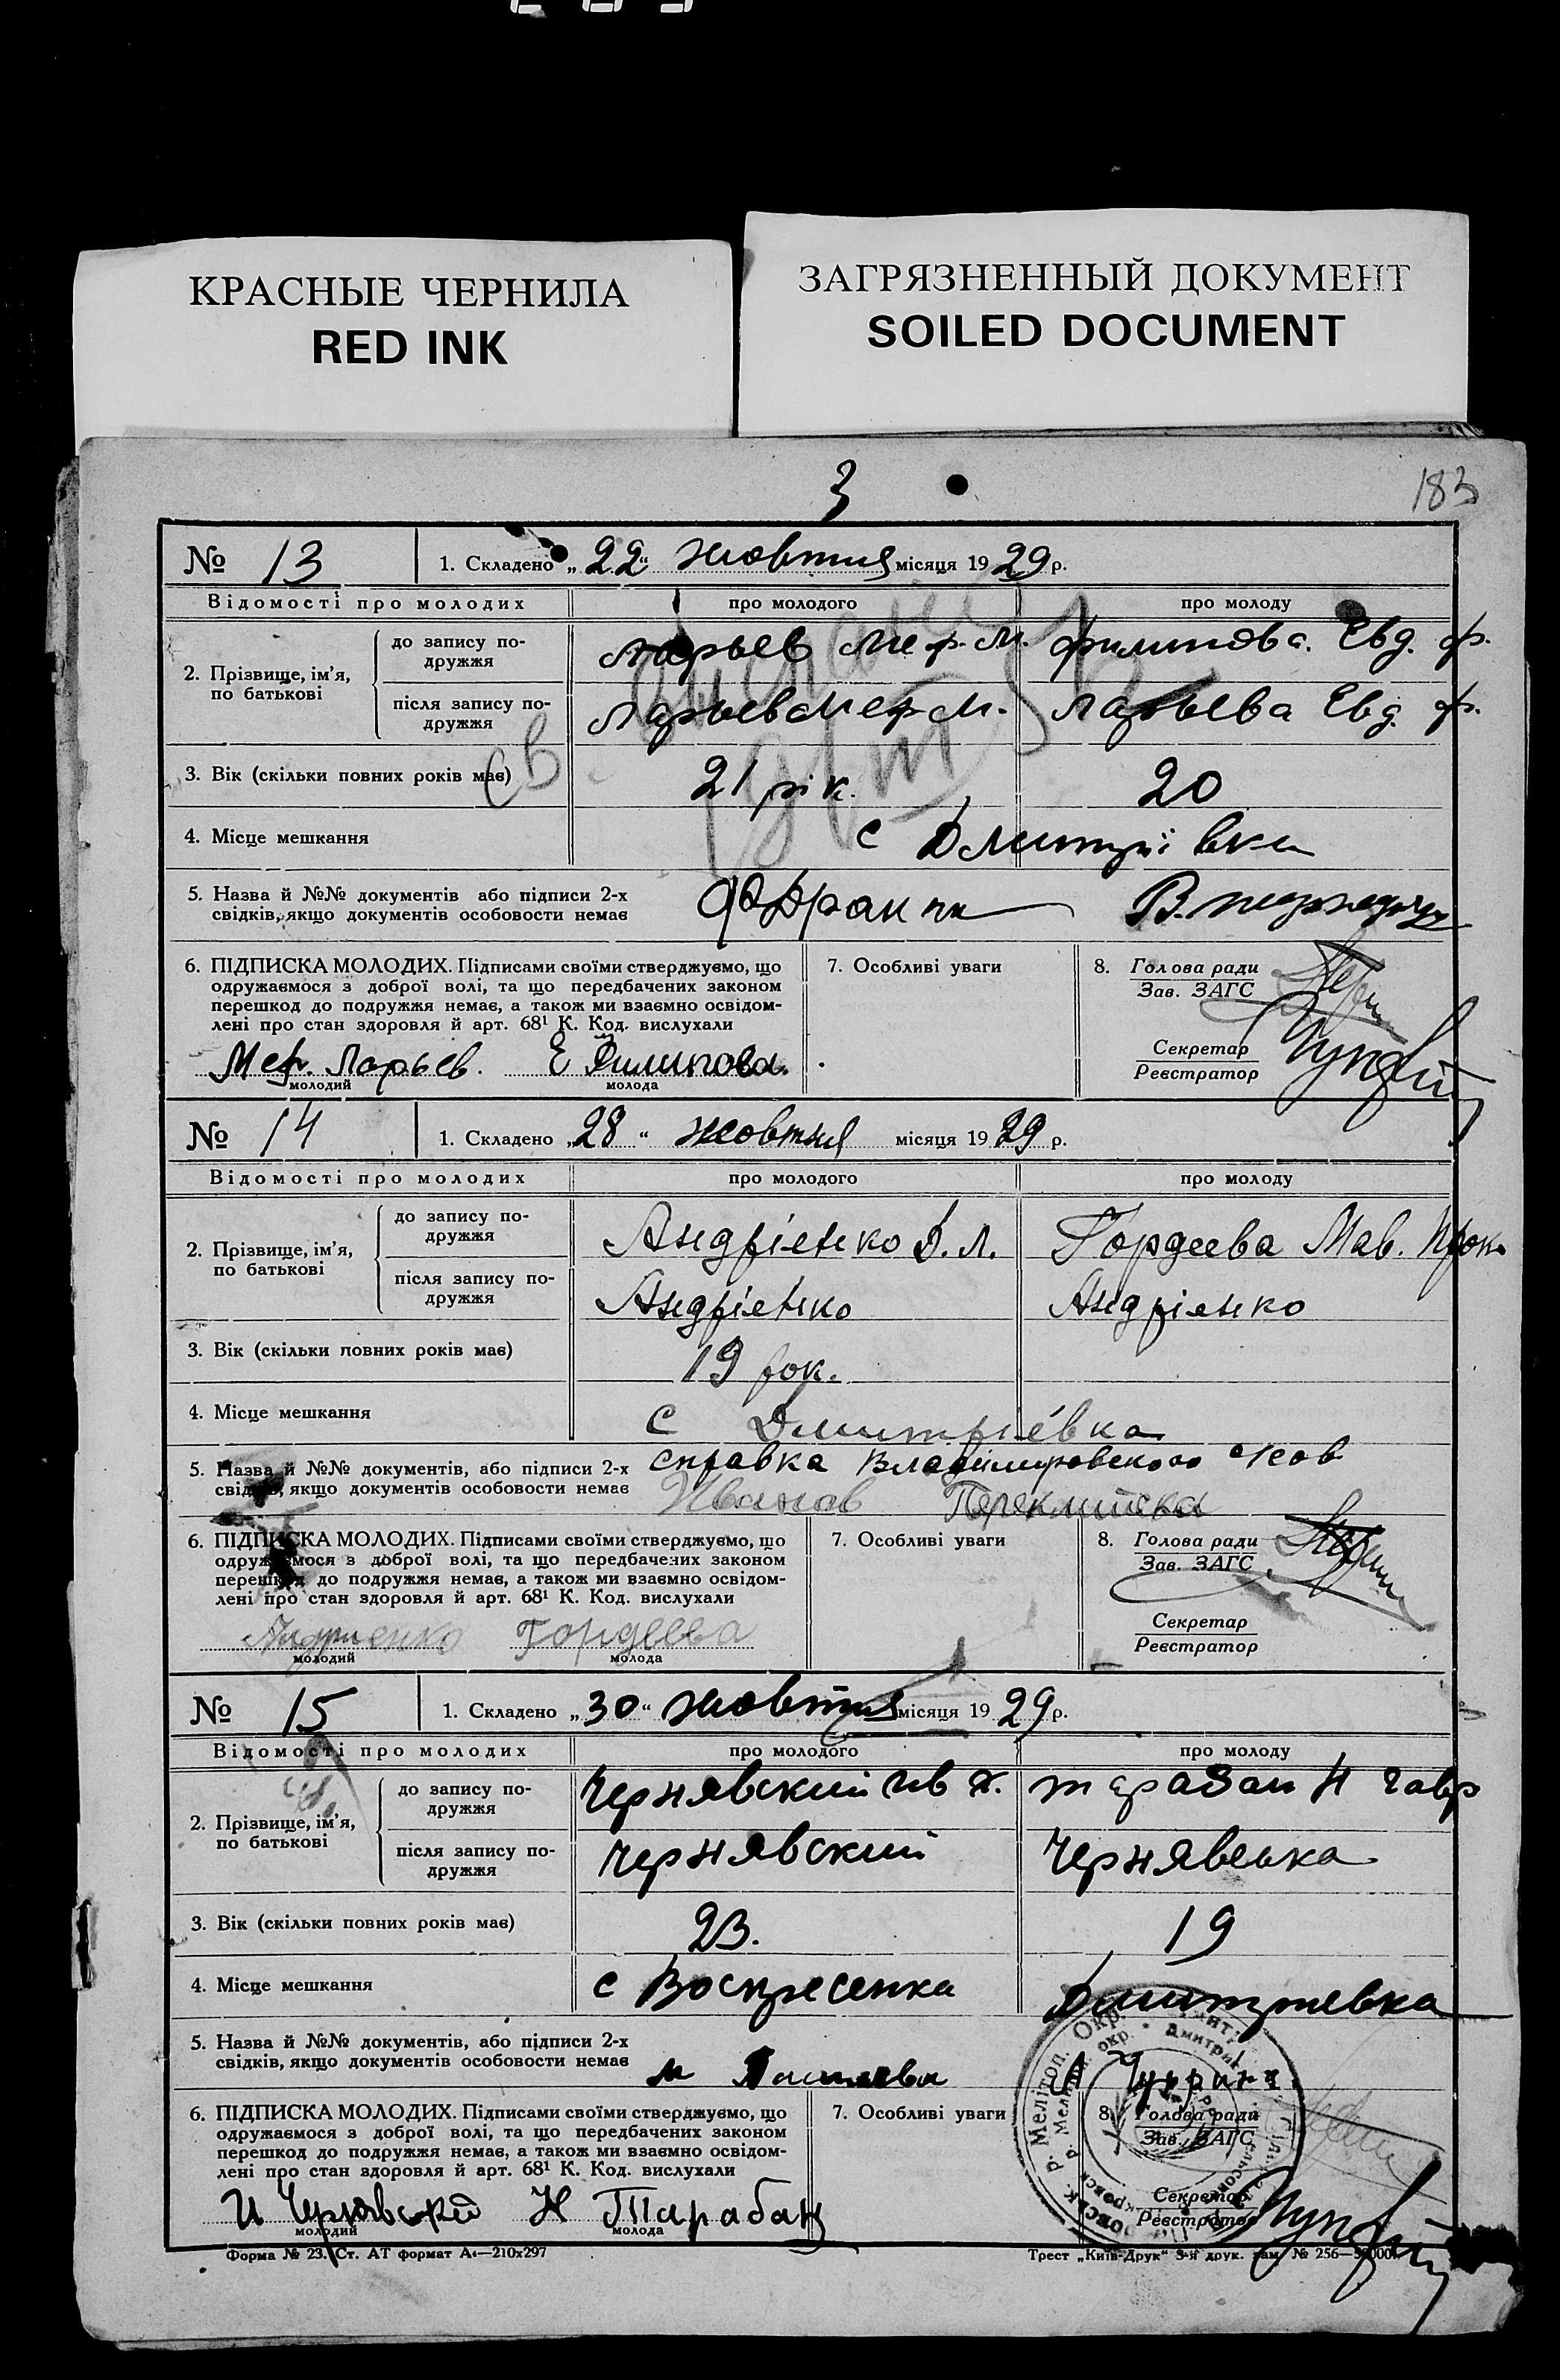 КРАСНЫЕ ЧЕРНИЛА
RED INK
ЗАГРЯЗНЕННЫЙ ДОКУМЕНТ
SOILED DOCUMENT
3
183
№ 13 1. Складено „22“ жовтня місяця 1929 р.
Відомості про молодих про молодого про молоду
2. Прізвище, ім'я, по батькові
до запису по-дружжя Ларьев Меф. М. Филипова. Евд. Ф.
після запису по-дружжя Ларьев Меф М. Ларьева Евд. Ф.
3. Вік (скільки повних років має) 21 рік. 20
4. Місце мешкання с Дмитріївка
5. Назва й №№ документів або підписи 2-х
свідків, якщо документів особовости немає
6. ПІДПИСКА МОЛОДИХ. Підписами своїми стверджуємо, що
одружаємося з доброї волі, та що передбачених законом
перешкод до подружжя немає, а також ми взаємно освідом-
лені про стан здоровля й арт. 68¹ К. Код. вислухали
Меф. Ларьев. Е Филипова.
молодий молода
7. Особливі уваги
8. Голова ради
Зав. ЗАГС
Секретар
Реєстратор
№ 14 1. Складено „28“ жовтня місяця 1929 р.
Відомості про молодих про молодого про молоду
2. Прізвище, ім'я, по батькові
до запису по-дружжя Андрієнко Д. Л. Гордеева Мав. Прок.
після запису по-дружжя Андрієнко Андріенко
3. Вік (скільки повних років має) 19 рок.
4. Місце мешкання С Дмитрієвка
5. Назва й №№ документів, або підписи 2-х справка Владимировского
свідків, якщо документів особовости немає Иванов
6. ПІДПИСКА МОЛОДИХ. Підписами своїми стверджуємо, що
одружаємося з доброї волі, та що передбачених законом
перешкод до подружжя немає, а також ми взаємно освідом-
лені про стан здоровля й арт. 68¹ К. Код. вислухали
Андриенко Гордеева
молодий молода
7. Особливі уваги
8. Голова ради
Зав. ЗАГС
Секретар
Реєстратор
№ 15 1. Складено „30“ жовтня місяця 1929 р.
Відомості про молодих про молодого про молоду
2. Прізвище, ім'я, по батькові
до запису по-дружжя Чернявский Ив Х. Тарабан Н Гавр
після запису по-дружжя Чернявский Чернявська
3. Вік (скільки повних років має) 23. 19
4. Місце мешкання с Воскресенка Дмитриевка
5. Назва й №№ документів, або підписи 2-х
свідків, якщо документів особовости немає
6. ПІДПИСКА МОЛОДИХ. Підписами своїми стверджуємо, що
одружаємося з доброї волі, та що передбачених законом
перешкод до подружжя немає, а також ми взаємно освідом-
лені про стан здоровля й арт. 68¹ К. Код. вислухали
И Чернявский Н Тарабан
молодий молода
7. Особливі уваги
8. Голова ради
Зав. ЗАГС
Секретар
Реєстратор
Форма № 23. Ст. АТ формат А₄—210х297
Трест „Київ-Друк“ 3-я друк. зам. № 256—